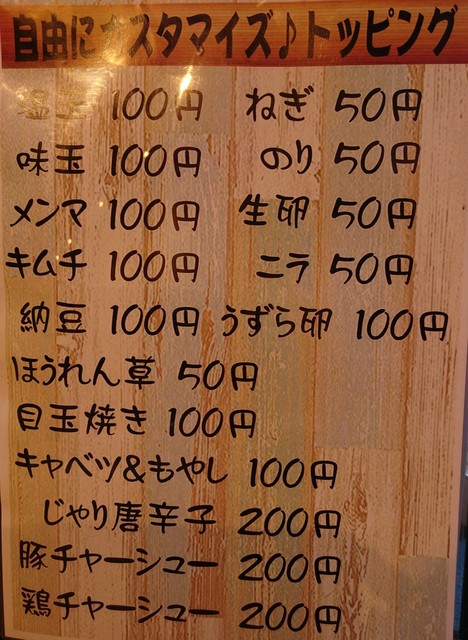 自由にカスタマイズ♪トッピング
塩玉 100円 ねぎ 50円
味玉 100円 のり 50円
メンマ 100円 生卵 50円
キムチ 100円 ニラ 50円
納豆 100円 うずら卵 100円
ほうれん草 50円
目玉焼き 100円
キャベツ&もやし 100円
じゃり唐辛子 200円
豚チャーシュー 200円
鶏チャーシュー 200円